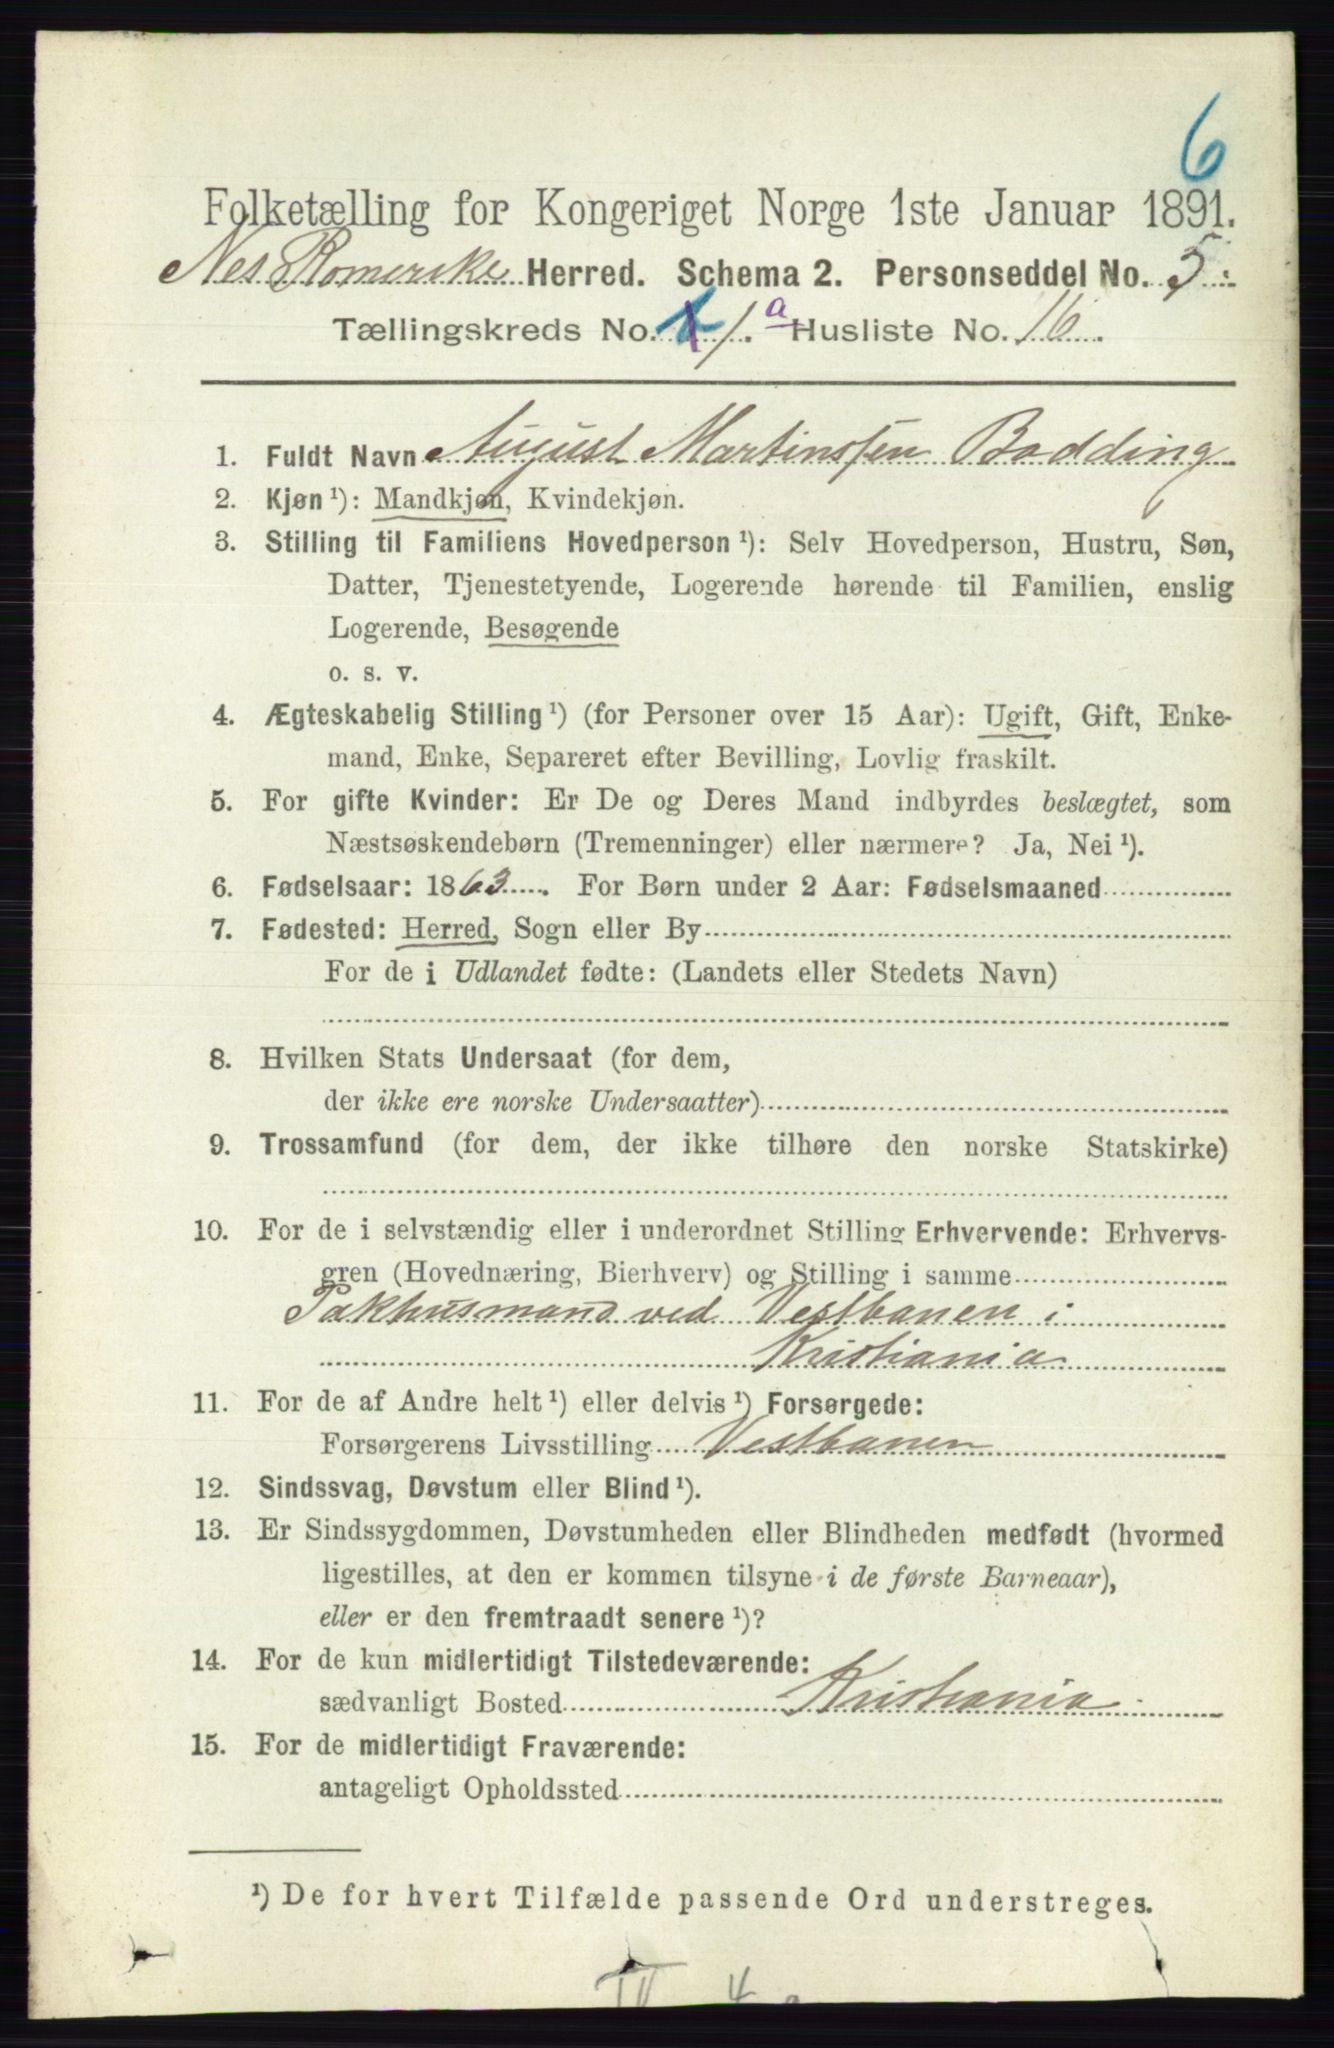 6
Folketælling for Kongeriget Norge 1ste Januar 1891.
Nes Romerike Herred. Schema 2. Personseddel No. 5.
Tællingskreds No. 1. a Husliste No. 16.
1. Fuldt Navn August Martinssen Bodding
2. Kjøn ¹): Mandkjøn, Kvindekjøn.
3. Stilling til Familiens Hovedperson ¹): Selv Hovedperson, Hustru, Søn,
Datter, Tjenestetyende, Logerende hørende til Familien, enslig
Logerende, Besøgende
o. s. v.
4. Ægteskabelig Stilling ¹) (for Personer over 15 Aar): Ugift, Gift, Enke-
mand, Enke, Separeret efter Bevilling, Lovlig fraskilt.
5. For gifte Kvinder: Er De og Deres Mand indbyrdes beslægtet, som
Næstsøskendebørn (Tremenninger) eller nærmere? Ja, Nei ¹).
6. Fødselsaar: 1863. For Børn under 2 Aar: Fødselsmaaned
7. Fødested: Herred, Sogn eller By
For de i Udlandet fødte: (Landets eller Stedets Navn)
8. Hvilken Stats Undersaat (for dem,
der ikke ere norske Undersaatter)
9. Trossamfund (for dem, der ikke tilhøre den norske Statskirke)
10. For de i selvstændig eller i underordnet Stilling Erhvervende: Erhvervs-
gren (Hovednæring, Bierhverv) og Stilling i samme
Pakhusmand ved Vestbanen i
Kristiania
11. For de af Andre helt ¹) eller delvis ¹) Forsørgede:
Forsørgerens Livsstilling Vestbanen
12. Sindssvag, Døvstum eller Blind ¹).
13. Er Sindssygdommen, Døvstumheden eller Blindheden medfødt (hvormed
ligestilles, at den er kommen tilsyne i de første Barneaar),
eller er den fremtraadt senere ¹)?
14. For de kun midlertidigt Tilstedeværende:
sædvanligt Bosted Kristiania
15. For de midlertidigt Fraværende:
antageligt Opholdssted
¹) De for hvert Tilfælde passende Ord understreges.